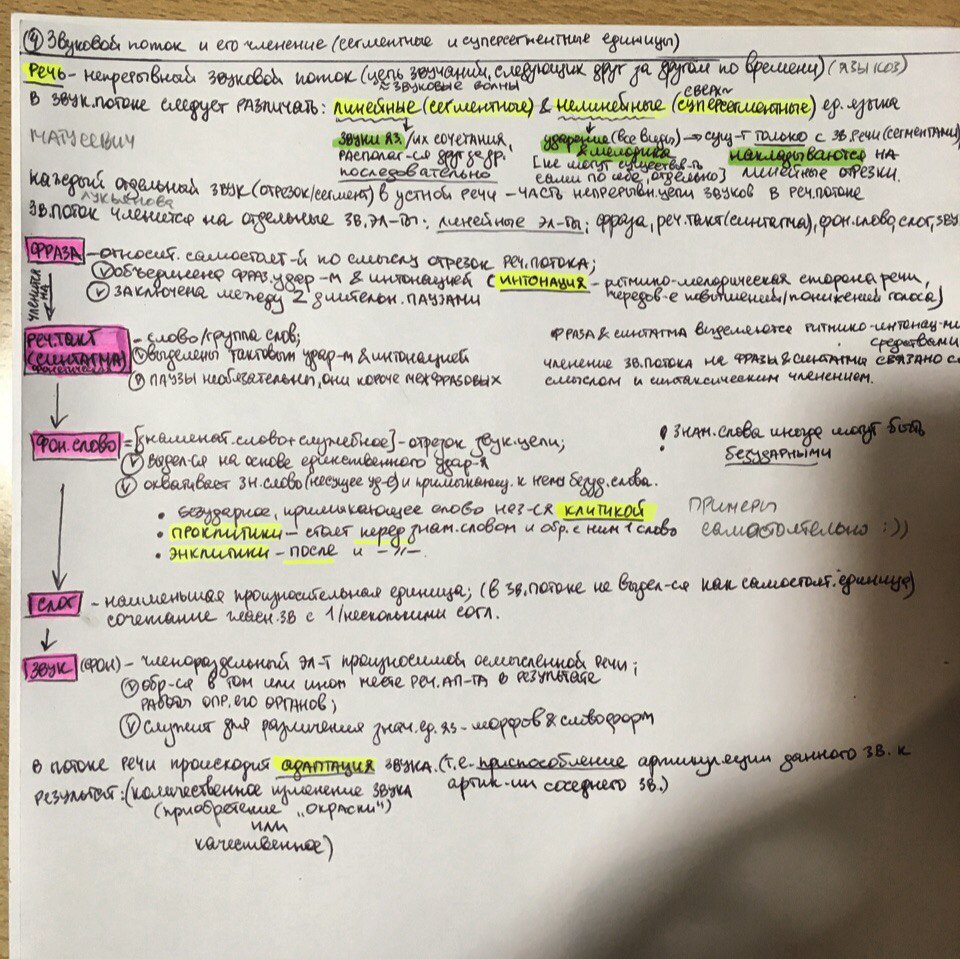 ④ Звуковой поток и его членение (сегментные и суперсегментные единицы)
Речь – непрерывный звуковой поток (цепь звучаний, следующих друг за другом по времени) (языкоз)
≈ звуковые волны
сверх~
В звук.потоке следует различать: линейные (сегментные) & нелинейные (суперсегментные) ед. языка
Матусевич
звуки яз/их сочетания,
располаг-ся друг за др.
последовательно
ударение (все виды) → сущ-т только с зв.речи (сегментами)
& мелодика накладываются на
[не могут существов-ть
сами по себе, отдельно] линейные отрезки.
Каждый отдельный звук (отрезок/сегмент) в устной речи – часть непрерывн.цепи звуков в реч.потоке
Лукьянова
Зв.поток членится на отдельные зв.эл-ты: линейные эл-ты: фраза, реч.такт (синтагма), фон.слово, слог, зву
Фраза – относит. самостоят-й по смыслу отрезок реч.потока;
объединена фраз.удар-м & интонацией с интонация – ритмико-мелодическая сторона речи,
чередов-е повышений/понижений голоса)
заключена между 2 длительн.паузами
членится на
Реч.такт – слово/группа слов;
(синтагма)
фонетическ
выделены тактовым удар-м & интонацией
паузы необязательны, они короче межфразовых
Фраза & синтагма выделяются ритмико-интонац-ми
средствами
членение зв.потока на фразы & синтагмы связано с
смыслом и синтаксическим членением.
Фон.слово = [знаменат.слово + служебное] – отрезок звук.цепи;
выдел-ся на основе единственного удар-я
охватывает зн.слово (несущее уд-е) и примыкающ. к нему безуд.слова.
! знам.слова иногда могут быть
безударными
• безударное, примыкающее слово наз-ся клитикой
• проклитики – стоят перед знам.словом и обр. с ним 1 слово
• энклитики – после и –"–.
Примеры
самостоятельно :))
Слог – наименьшая произносительная единица; (в зв.потоке не выдел-ся как самостоят. единица)
сочетание гласн.зв с 1/несколькими согл.
Звук (фон) – членораздельный эл-т произносимой осмысленной речи;
обр-ся в том или ином месте реч.ап-та в результате
работы опр. его органов;
служит для различения знач.ед.яз – морфов & словоформ
В потоке речи происходит адаптация звука. (т.е. приспособление артикуляции данного зв. к
артик-ии соседнего зв.)
результат: (количественное изменение звука
(приобретение „окраски")
или
качественное)